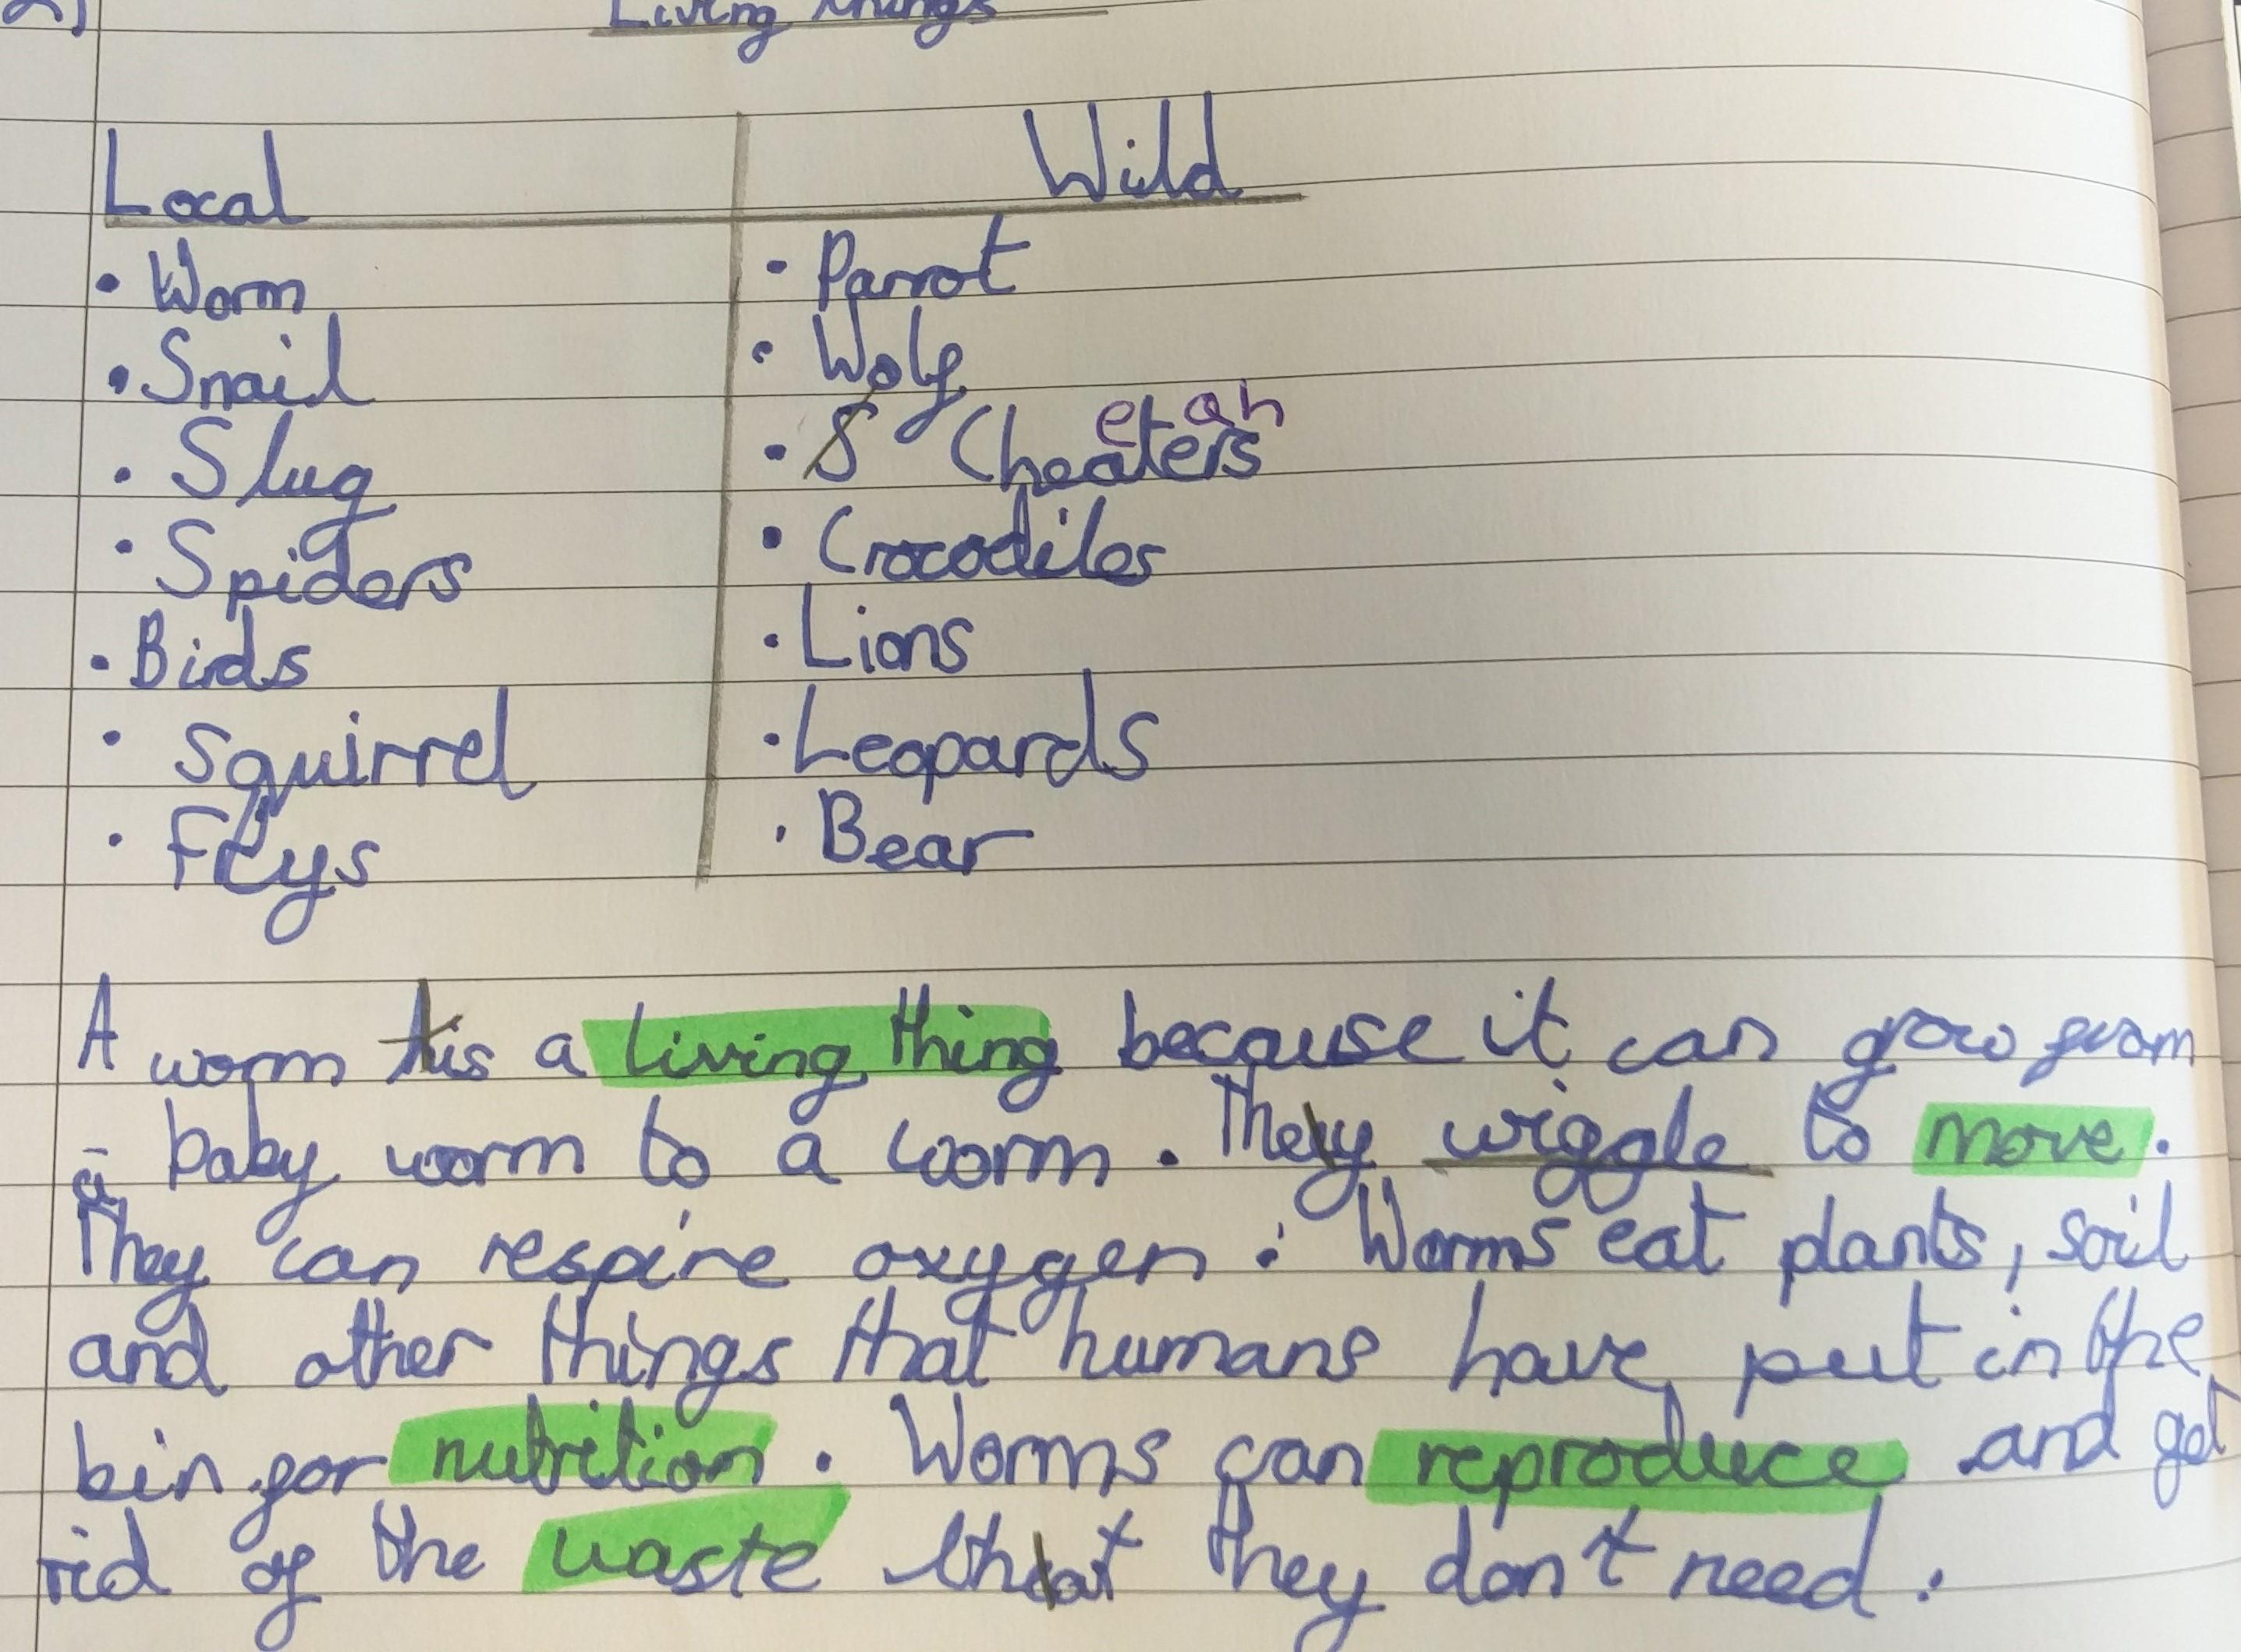 2)
Living things
Local Wild
• Worm • Parrot
• Snail • Wolf
• Slug • Cheaters
e ah
• Spiders • Crocodiles
• Birds • Lions
• Squirrel • Leopards
• Flys • Bear
A worm is a living thing because it can grow from
a baby worm to a worm. They wiggle to move.
They can respire oxygen. Worms eat plants, soil
and other things that humans have put in the
bin for nutrition. Worms can reproduce and get
rid of the waste that they don't need.